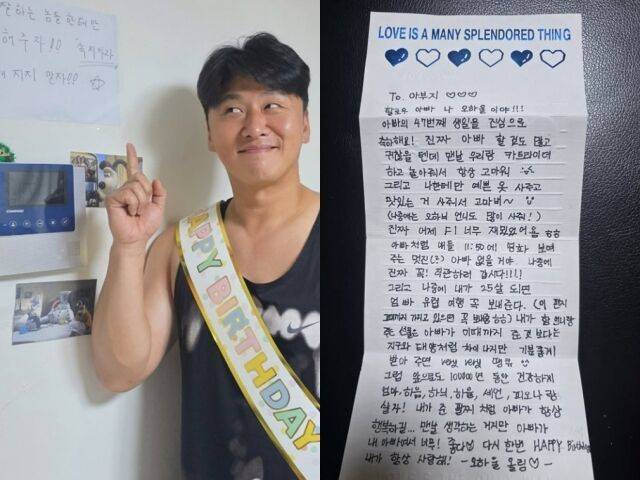 잘하는 놈들한테만
해주자!!
지지 말자!!
HAPPY BIRTHDAY
LOVE IS A MANY SPLENDORED THING
To. 아부지 ♡♡♡
헬로우 아빠 나 오하율이야!!!
아빠의 47번째 생일을 진심으로
축하해요! 진짜 아빠 할 것도 많고
귀찮을 텐데 맨날 우리랑 카트라이더
하고 놀아줘서 항상 고마워
그리고 나한테만 예쁜 옷 사주고
맛있는 거 사줘서 고마워~
(나중에는 오하늬 언니도 많이 사줘!)
진짜 어제 F1 너무 재밌었어용 ㅎㅎ
아빠처럼 애들 11:50에! 영화 보여
주는 멋진(?) 아빠 없을 거야 나중에
진짜 꼭! 직관하러 갑시다!!!!
그리고 나중에 내가 25살 되면
엄빠 유럽 여행 꼭 보내준다. (이 편지
그때까지 가지고 있으면 꼭 보내줌ㅎㅎ) 내가 할
주는 선물은 아빠가 이때까지 준 것보다는
지구와 태양처럼 차이 나지만 기쁘게
받아 주면 very very 땡큐
그럼 앞으로도 100000년 동안 건강하게
엄마, 하음, 하늬, 하율, 세연, 피오나랑
살자! 내가 준 편지처럼 아빠가 항상
행복하길... 맨날 생각하는 거지만 아빠가
내 아빠여서 너무! 좋다♡ 다시 한번 HAPPY Birthday
내가 항상 사랑해! - 오하율 올림♡ -